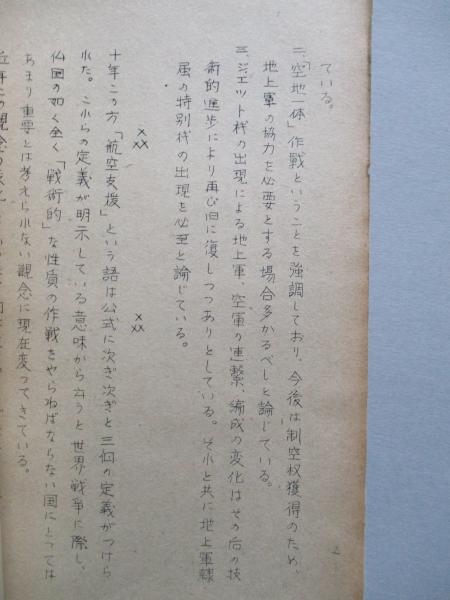 ている。
二、「空地一体」作戦ということを強調しており、今後は制空权獲得のため、
地上軍の協力を必要とする場合多かるべしと論じている。
三、ジェット机の出現による地上軍、空軍の連繋、編成の変化はその后の技
術的進歩により再び旧に復しつつありとしている。それと共に地上軍隷
属の特別机の出現を必至と論じている。
××× ×××
十年この方「航空支援」という語は公式に次ぎ次ぎと三個の定義がつけら
れた。これらの定義が明示している意味から云うと世界戦争に際し、
仏国の如く全く「戦術的」な性質の作戦をやらねばならない国にとっては
あまり重要とは考えられない観念に現在変ってきている。
近年この観念の